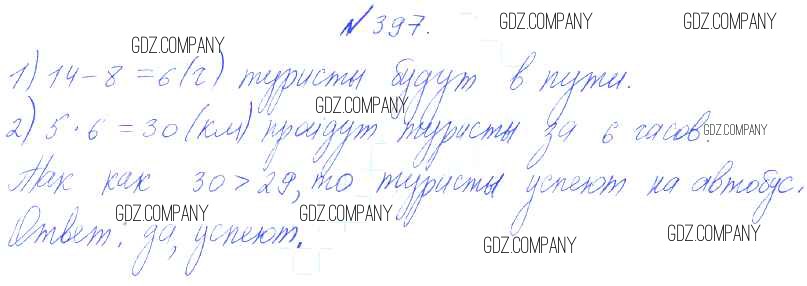 № 397.
1) 14 - 8 = 6 (ч) туристы будут в пути.
2) 5 · 6 = 30 (км) пройдут туристы за 6 часов.
Так как 30 > 29, то туристы успеют на автобус.
Ответ: да, успеют.
GDZ.COMPANY
GDZ.COMPANY
GDZ.COMPANY
GDZ.COMPANY
GDZ.COMPANY
GDZ.COMPANY
GDZ.COMPANY
GDZ.COMPANY